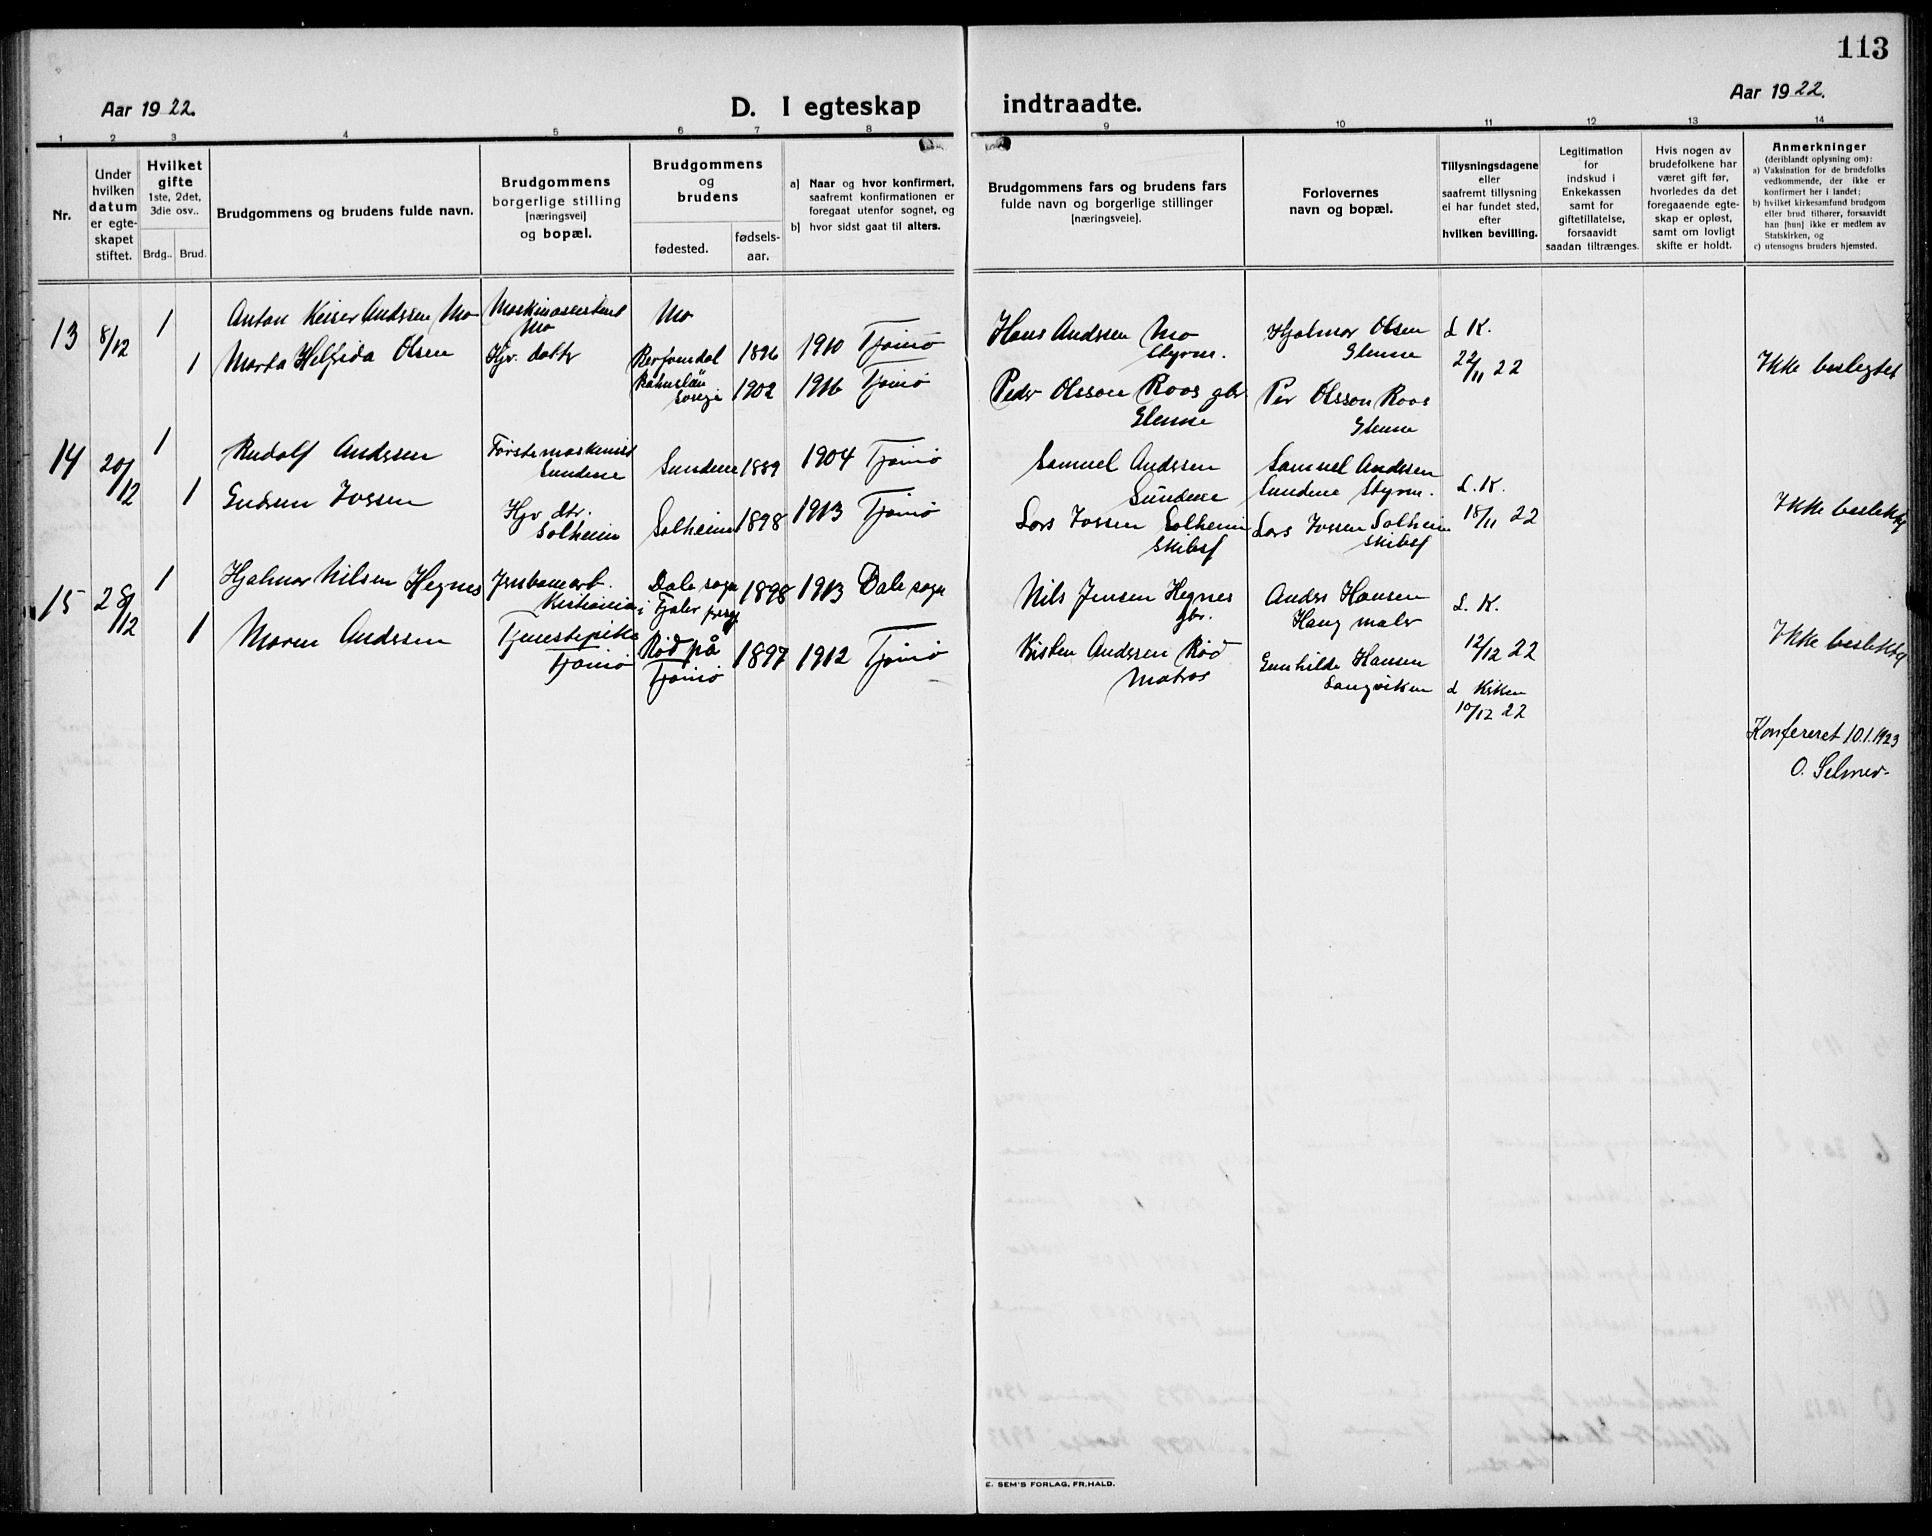 113
Aar 1922.
D. I egteskap indtraadte.
Aar 1922.
1 2 3 4 5 6 7 8 9 10 11 12 13 14
Nr.
Under
hvilken
datum
er egte-
skapet
stiftet.
Hvilket
gifte
1ste, 2det,
3die osv..
Brdg.. Brud.
Brudgommens og brudens fulde navn.
Brudgommens
borgerlige stilling
[næringsvei]
og bopæl.
Brudgommens
og
brudens
fødested.
fødsels-
aar.
a) Naar og hvor konfirmert,
saafremt konfirmationen er
foregaat utenfor sognet, og
b) hvor sidst gaat til alters.
Brudgommens fars og brudens fars
fulde navn og borgerlige stillinger
[næringsveie].
Forlovernes
navn og bopæl.
Tillysningsdagene
eller
saafremt tillysning
ei har fundet sted,
efter
hvilken bevilling.
Legitimation
for
indskud i
Enkekassen
samt for
giftetillatelse,
forsaavidt
saadan tiltrænges.
Hvis nogen av
brudefolkene har
været gift før,
hvorledes da det
foregaaende egte-
skap er opløst,
samt om lovligt
skifte er holdt.
Anmerkninger
(deriblandt oplysning om):
a) Vaksination for de brudefolks
vedkommende, der ikke er
konfirmert her i landet;
b) hvilket kirkesamfund brudgom
eller brud tilhører, forsaavidt
han [hun] ikke er medlem av
Statskirken, og
c) utensogns bruders hjemsted.
13 8/12 1 Anton Keiser Andersen Mo Maskinassistent Mo Mo 1896 1910 Tjømø
Hans Andersen Mo Styrm. Hjalmar Olsen Glenne L K. 22/11 22 Ikke beslegtet
1 Marta Helfrida Olsen Hjv. dattr 1902 1916 Tjømø
Peder Olsson Roos gbr Glenne Per Olsson Roos Glenne
14 20/12 1 Rudolf Andersen Førstemaskinist Sundene Sundene 1889 1904 Tjømø
Samuel Andersen Sundene Samuel Andersen Sundene Styrm. L. K. 18/11 22 Ikke beslektet
1 Gudrun Iversen Hjv. dtr. Solheim Solheim 1898 1913 Tjømø
Lars Iversen Solheim Skibsf Lars Iversen Solheim Skibsf
15 28/12 1 Hjalmar Nilsen Hegnes Jernbanearb. Kristiania Dale sogn i Fjaler prestg 1898 1913 Dale sogn
Nils Jensen Hegnes gbr. Anders Hansen Haug maler L. K. 12/12 22 Ikke beslektet
1 Maren Andersen Tjenestepike Tjømø Rød på Tjømø 1897 1912 Tjømø
Kristen Andersen Rød Matros Gunhilde Hansen Langviken L Kirken 10/12 22
Konfereret 10.1.1923
O. Selmer.
E. SEM'S FORLAG, FR.HALD.